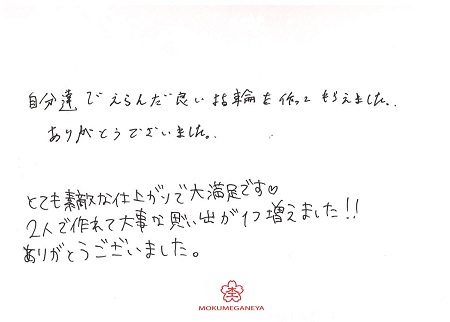 自分達でえらんだ良い指輪を作ってもらえました。
ありがとうございました。
とても素敵な仕上がりで大満足です♡
2人で作れて大事な思い出が1つ増えました!!
ありがとうございました。
MOKUMEGANEYA